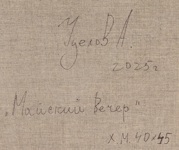 Уделов А.
2025г
„Майский вечер"
х.м. 40х45